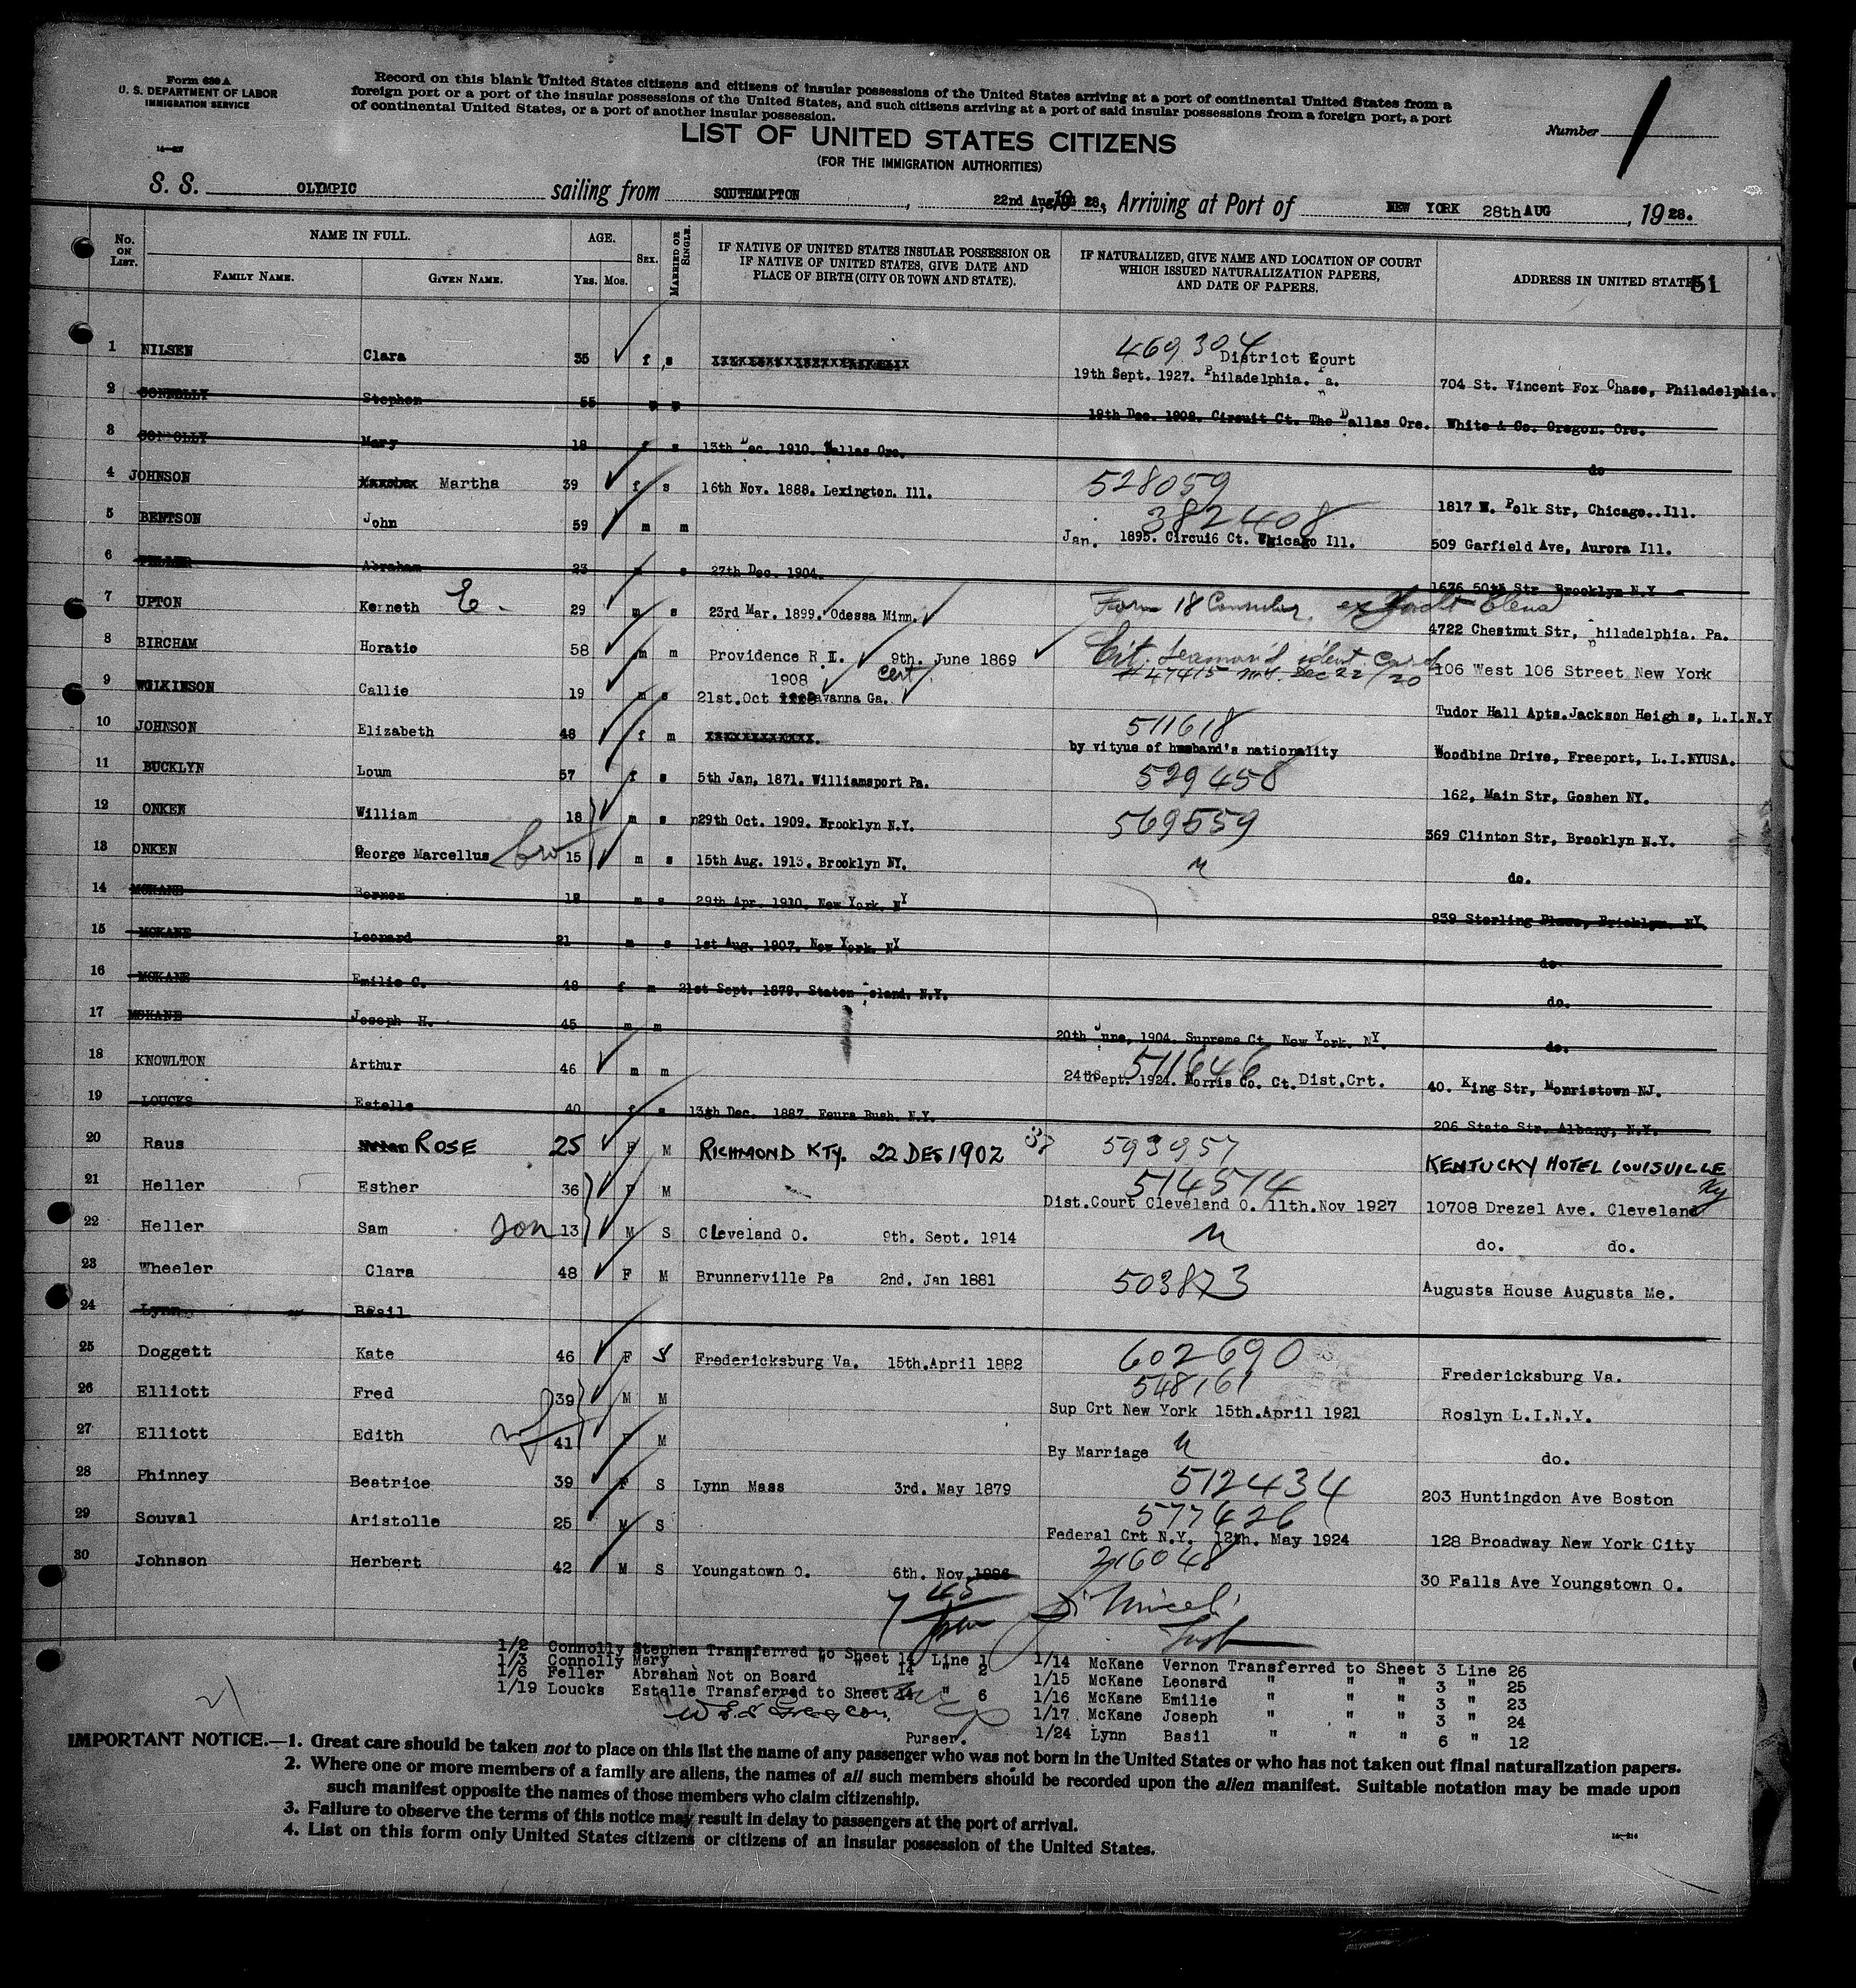 Form 630 A
U. S. DEPARTMENT OF LABOR
IMMIGRATION SERVICE
Record on this blank United States citizens and citizens of insular possessions of the United States arriving at a port of continental United States from a
foreign port or a port of the insular possessions of the United States, and such citizens arriving at a port of said insular possessions from a foreign port, a port
of continental United States, or a port of another insular possession.
LIST OF UNITED STATES CITIZENS
(FOR THE IMMIGRATION AUTHORITIES)
Number 1
S. S. OLYMPIC sailing from SOUTHAMPTON, 22nd Aug 28, Arriving at Port of NEW YORK 28th AUG, 1928.
No. ON LIST. NAME IN FULL. FAMILY NAME. GIVEN NAME. AGE. YRS. MOS. SEX. MARRIED OR SINGLE. IF NATIVE OF UNITED STATES INSULAR POSSESSION OR IF NATIVE OF UNITED STATES, GIVE DATE AND PLACE OF BIRTH (CITY OR TOWN AND STATE). IF NATURALIZED, GIVE NAME AND LOCATION OF COURT WHICH ISSUED NATURALIZATION PAPERS, AND DATE OF PAPERS. ADDRESS IN UNITED STATES 51
1 NILSEN Clara 35 f s 469304 District Court 19th Sept. 1927. Philadelphia. Pa. 704 St. Vincent Fox Chase, Philadelphia.
2 CONNOLLY Stephen 55 m m 19th Dec. 1908. Circuit Ct. The Dallas Ore. White & Co. Oregon. Ore.
3 CONNOLLY Mary 18 f s 13th Dec. 1910. Dallas Ore. do
4 JOHNSON Martha 39 f s 16th Nov. 1888. Lexington. Ill. 528059 1817 W. Polk Str, Chicago..Ill.
5 BENTSON John 59 m m 382408 Jan. 1895. Circui6 Ct. Chicago Ill. 509 Garfield Ave, Aurora Ill.
6 FELLER Abraham 23 m s 27th Dec. 1904. 1676 50th Str Brooklyn N.Y
7 UPTON Kenneth E. 29 m s 23rd Mar. 1899. Odessa Minn. Form 18 Consular, ex Yacht Elena 4722 Chestnut Str, Philadelphia. Pa.
8 BIRCHAM Horatio 58 m m Providence R I. 9th. June 1869 Cit. Seaman's ident. Card #47415 Dec 22/20 106 West 106 Street New York
9 WILKINSON Callie 19 m s 21st.Oct 1908 Savanna Ga. Cert Tudor Hall Apts.Jackson Heigh s, L.I.N.Y
10 JOHNSON Elizabeth 48 f m 511618 by vityue of husband's nationality Woodbine Drive, Freeport, L.I.NYUSA.
11 BUCKLYN Loum 57 f s 5th Jan, 1871. Williamsport Pa. 529458 162, Main Str, Goshen NY.
12 ONKEN William 18 m s 29th Oct. 1909. Brooklyn N.Y. 569559 369 Clinton Str, Brooklyn N.Y.
13 ONKEN George Marcellus bro 15 m s 15th Aug. 1913. Brooklyn NY. " do.
14 MCKANE Vernon 18 m s 29th Apr. 1910. New York. NY 939 Sterling Place, Bricklyn. NY
15 MCKANE Leonard 21 m s 1st Aug. 1907. New York. NY do
16 MCKANE Emilie C. 48 f m 21st Sept. 1879. Staten Island. N.Y. do.
17 MCKANE Joseph H. 45 m m 20th June, 1904. Supreme Ct. New York. NY. do.
18 KNOWLTON Arthur 46 m m 511646 24th Sept. 1924. Morris Co. Ct. Dist.Crt. 40. King Str, Morristown NJ.
19 LOUCKS Estelle 40 f s 13th Dec. 1887. Feura Bush. N.Y. 206 State Str. Albany, N.Y.
20 Raus ROSE 25 F M RICHMOND KTY. 22 DES 1902 593957 KENTUCKY HOTEL LOUISVILLE Ky
21 Heller Esther 36 F M 514514 Dist.Court Cleveland O. 11th.Nov 1927 10708 Drezel Ave. Cleveland
22 Heller Sam son 13 M S Cleveland O. 9th. Sept. 1914 " do. do.
23 Wheeler Clara 48 F M Brunnerville Pa 2nd. Jan 1881 503873 Augusta House Augusta Me.
24 Lynn Basil
25 Doggett Kate 46 F S Fredericksburg Va. 15th.April 1882 602690 Fredericksburg Va.
26 Elliott Fred 39 M M 548161 Sup Crt New York 15th.April 1921 Roslyn L.I.N.Y.
27 Elliott Edith wf 41 F M By Marriage " do.
28 Phinney Beatrice 39 F S Lynn Mass 3rd. May 1879 512434 203 Huntingdon Ave Boston
29 Souval Aristolle 25 M S 577426 Federal Crt N.Y. 12th. May 1924 128 Broadway New York City
30 Johnson Herbert 42 M S Youngstown O. 6th. Nov 1886 216048 30 Falls Ave Youngstown O.
1/2 Connolly Stephen Transferred to Sheet 14 Line 1
1/3 Connolly Mary " " " 14 " 2
1/6 Feller Abraham Not on Board
1/19 Loucks Estelle Transferred to Sheet 14 " 6
Purser.
1/14 McKane Vernon Transferred to Sheet 3 Line 26
1/15 McKane Leonard " " " 3 " 25
1/16 McKane Emilie " " " 3 " 23
1/17 McKane Joseph " " " 3 " 24
1/24 Lynn Basil " " " 6 " 12
IMPORTANT NOTICE.—1. Great care should be taken not to place on this list the name of any passenger who was not born in the United States or who has not taken out final naturalization papers.
2. Where one or more members of a family are aliens, the names of all such members should be recorded upon the alien manifest. Suitable notation may be made upon
such manifest opposite the names of those members who claim citizenship.
3. Failure to observe the terms of this notice may result in delay to passengers at the port of arrival.
4. List on this form only United States citizens or citizens of an insular possession of the United States.